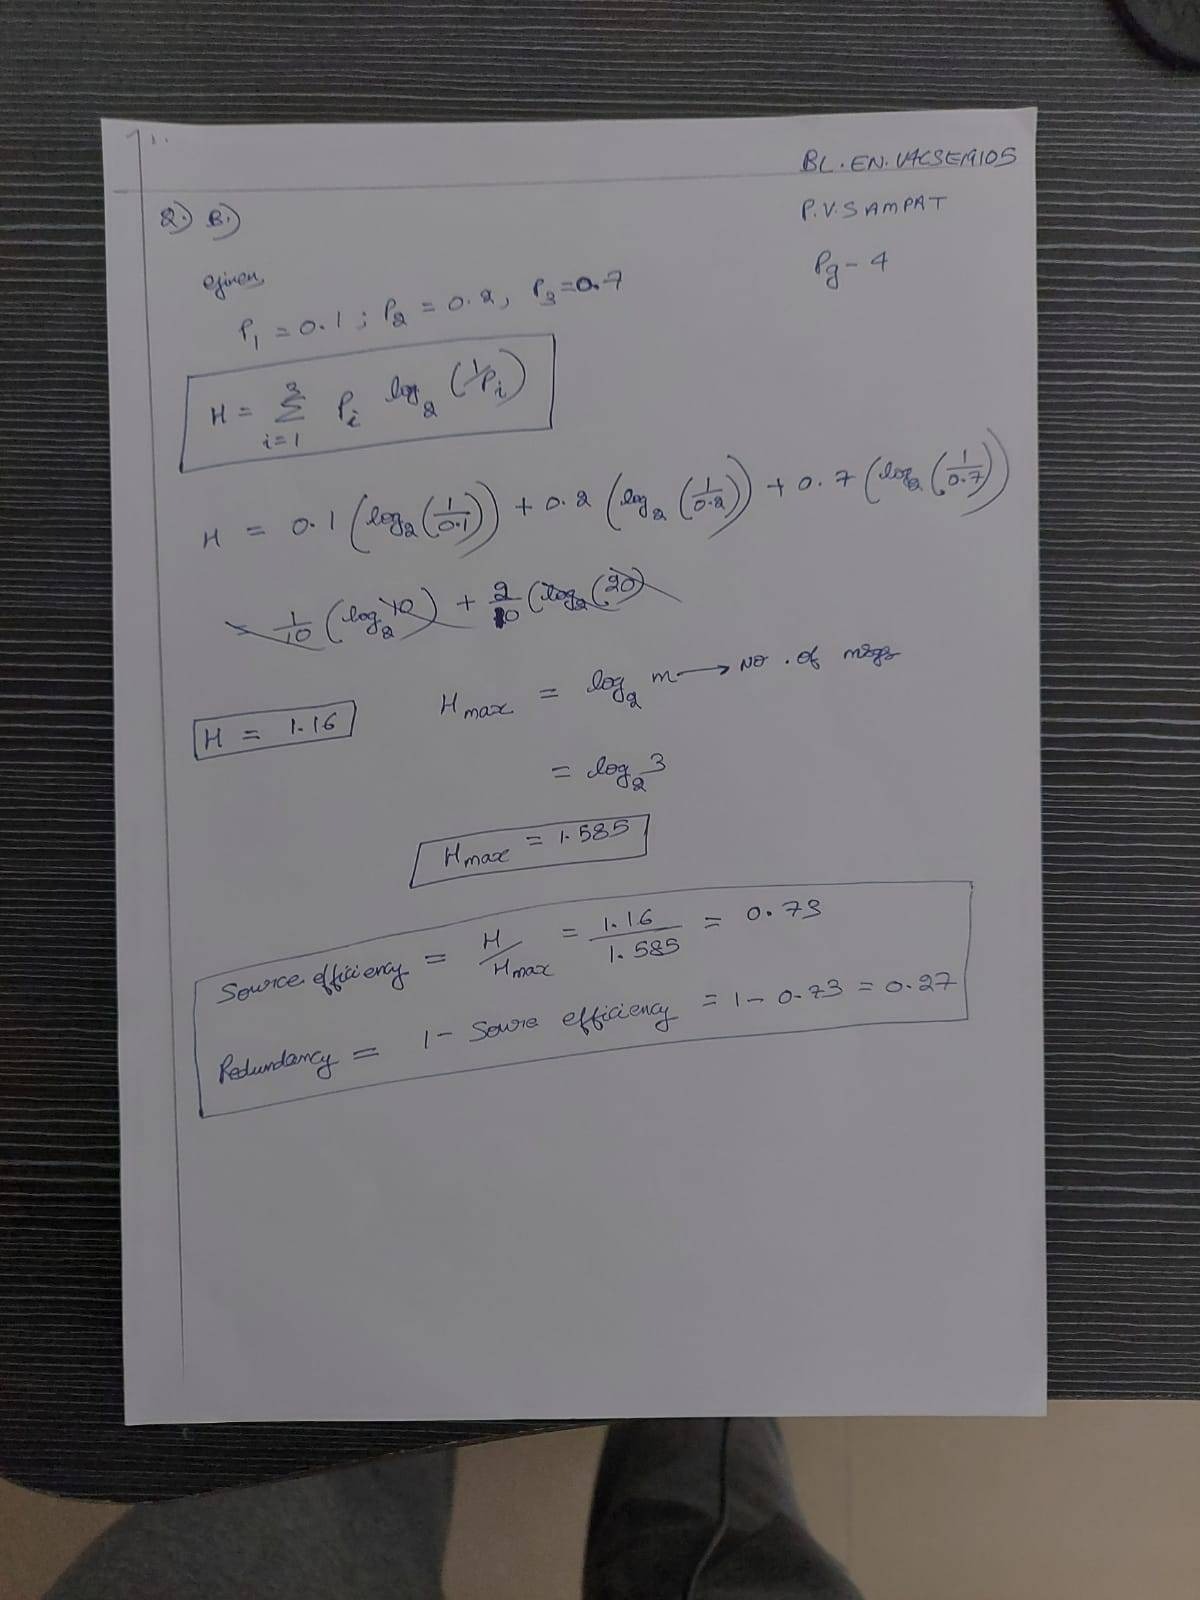 BL.EN.U4CSE19105
P.V.SAMPAT
Pg - 4
2.) B.)
Given,
P₁ = 0.1 ; P₂ = 0.2, P₃ = 0.7
H = 3 Σ i=1 Pᵢ log₂ (1/Pᵢ)
H = 0.1 (log₂(1/0.1)) + 0.2 (log₂(1/0.2)) + 0.7 (log₂(1/0.7))
= 1/10 (log₂ 10) + 2/10 (log₂(20)
H = 1.16
Hmax = log₂ m → No. of msgs
= log₂ 3
Hmax = 1.585
Source efficiency = H/Hmax = 1.16/1.585 = 0.73
Redundancy = 1 - Soure efficiency = 1 - 0.73 = 0.27